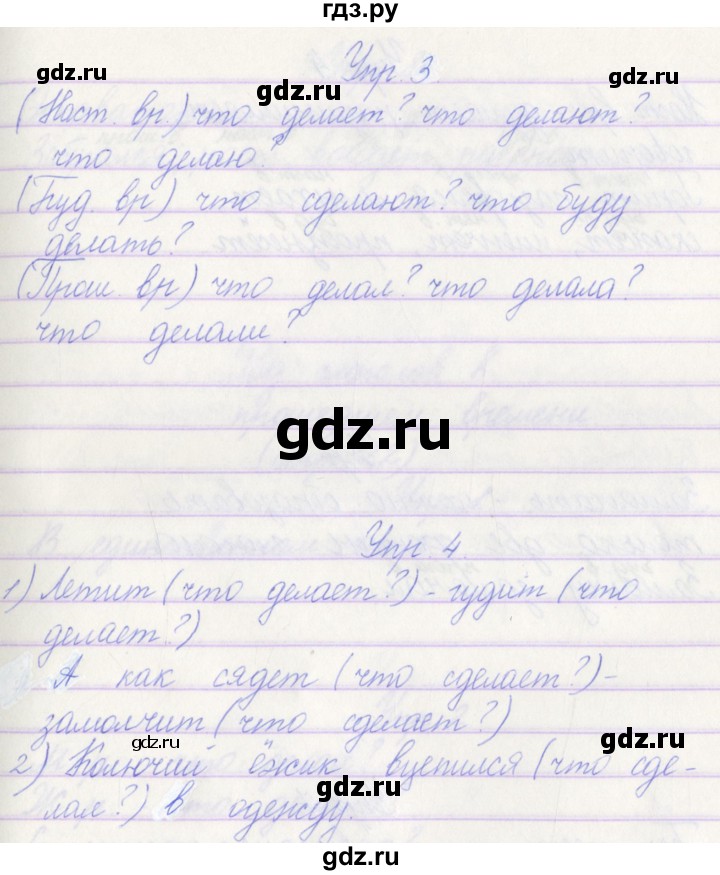 гдз.ру
gdz.ru
gdz.ru
Упр. 3.
(Наст. вр.) что делает? что делают?
что делаю?
(Буд. вр) что сделают? что буду
делать?
(Прош. вр) что делал? что делала?
что делали?
gdz.ru
Упр 4.
1) Летит (что делает?) - гудит (что
делает?)
А как сядет (что сделает?)-
замолчит (что сделает?)
gdz.ru
gdz.ru
2) Колючий ёжик вцепился (что сде-
лал?) в одежду.
gdz.ru